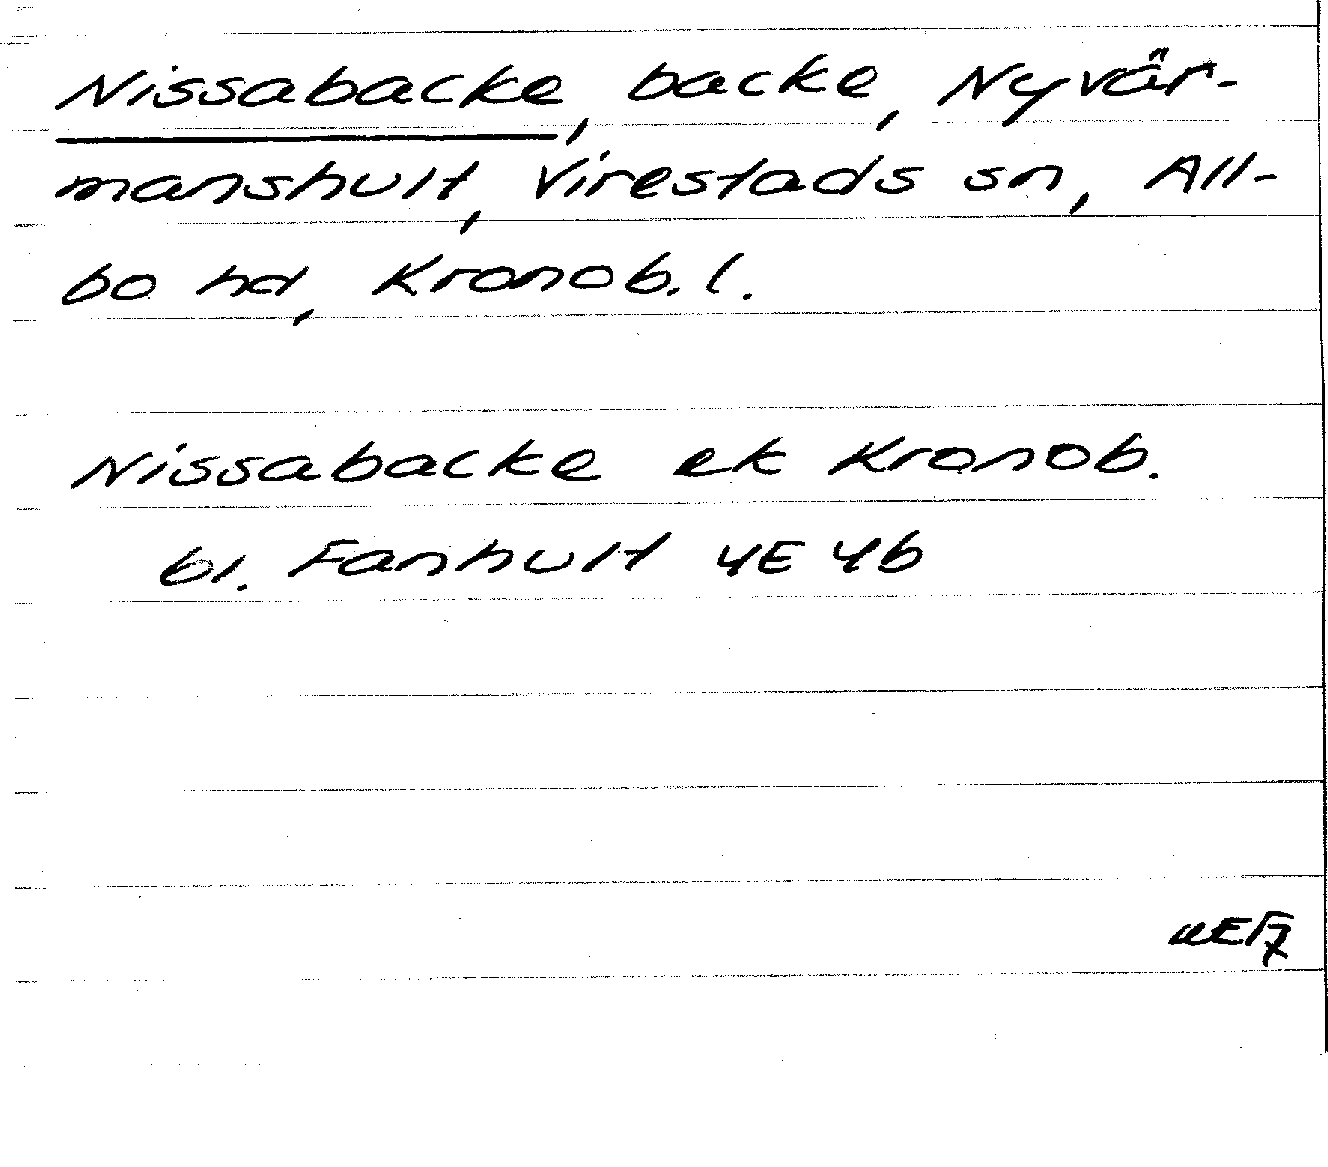 Nissabacke, backe, Nyvär-
manshult, Virestads sn, All-
bo hd, Kronob. l.
Nissabacke ek Kronob.
bl. Fanhult 4E 4b